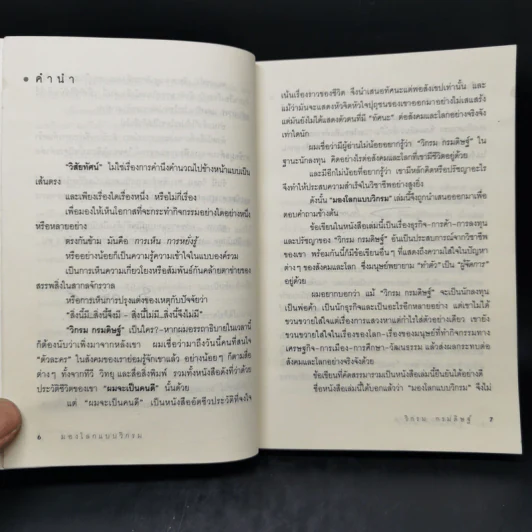 • คำนำ
"วิสัยทัศน์" ไม่ใช่เรื่องการคำนึงคำนวณไปข้างหน้าแบบเป็น
เส้นตรง
และเพียงเรื่องใดเรื่องหนึ่ง หรือไม่กี่เรื่อง
เพื่อมองให้เห็นโอกาสที่จะกระทำกิจกรรมอย่างใดอย่างหนึ่ง
หรือหลายอย่าง
ตรงกันข้าม มันคือ การเห็น การหยั่งรู้
หรืออย่างน้อยก็เป็นความรู้ความเข้าใจในแบบองค์รวม
เป็นการเห็นความเกี่ยวโยงหรือสัมพันธ์กันคล้ายตาข่ายของ
สรรพสิ่งในสากลจักรวาล
หรือการเห็นการปรุงแต่งของเหตุกับปัจจัยว่า
"สิ่งนี้มี..สิ่งนี้จึงมี – สิ่งนี้ไม่มี..สิ่งนี้จึงไม่มี"
"วิกรม กรมดิษฐ์" เป็นใคร?-หากผมอรรถาธิบายในเวลานี้
ก็ต้องนับว่าเพิ่งมาจากหลังเขา ผมเชื่อว่ามาถึงวันนี้คนที่สนใจ
"ตัวละคร" ในสังคมของเราย่อมรู้จักเขาแล้ว อย่างน้อยๆ ก็ตามสื่อ
ต่างๆ ทั้งจากทีวี วิทยุ และสื่อสิ่งพิมพ์ รวมทั้งหนังสือดังที่ว่าด้วย
ประวัติชีวิตของเขา "ผมจะเป็นคนดี" นั้นด้วย
แต่ "ผมจะเป็นคนดี" เป็นหนังสืออัตชีวประวัติที่จงใจ
6 มองโลกแบบวิกรม
เน้นเรื่องราวของชีวิต จึงนำเสนอทัศนะแต่พอสังเขปเท่านั้น และ
แม้ว่ามันจะแสดงหัวจิตหัวใจปุถุชนของเขาออกมาอย่างไม่เสแสร้ง
แต่มันยังไม่ได้แสดงตัวตนที่มี "ทัศนะ" ต่อสังคมและโลกอย่างจริงจัง
เท่าใดนัก
ผมเชื่อว่ามีผู้อ่านไม่น้อยอยากรู้ว่า "วิกรม กรมดิษฐ์" ใน
ฐานะนักลงทุน คิดอย่างไรต่อสังคมและโลกที่เขามีชีวิตอยู่ด้วย
และมีอีกไม่น้อยที่อยากรู้ว่า เขามีหลักคิดหรือปรัชญาอะไร
จึงทำให้ประสบความสำเร็จในวิชาชีพอย่างสูงยิ่ง
ดังนั้น "มองโลกแบบวิกรม" เล่มนี้จึงถูกนำเสนอออกมาเพื่อ
ตอบคำถามข้างต้น
ข้อเขียนในหนังสือเล่มนี้เป็นเรื่องธุรกิจ-การค้า-การลงทุน
และปรัชญาของ "วิกรม กรมดิษฐ์" อันเป็นประสบการณ์จากวิชาชีพ
ของเขา พร้อมกันนี้ก็มีข้อเขียนอื่นๆ ที่แสดงถึงความใส่ใจในปัญหา
ต่างๆ ของสังคมและโลก ซึ่งมนุษย์พยายาม "ทำตัว" เป็น "ผู้จัดการ"
อยู่ด้วย
ผมอยากบอกว่า แม้ "วิกรม กรมดิษฐ์" จะเป็นนักลงทุน
เป็นพ่อค้า เป็นนักธุรกิจและเป็นอะไรอีกหลายอย่าง แต่เขาไม่ได้
ขวนขวายใส่ใจแต่เรื่องการแสวงหาแต่กำไรใส่ตัวอย่างเดียว เขายัง
ขวนขวายใส่ใจในเรื่องของโลก-เรื่องของมนุษย์ที่ทำกิจกรรมทาง
เศรษฐกิจ-การเมือง-การศึกษา-วัฒนธรรม แล้วส่งผลกระทบต่อ
สังคมและโลกอย่างจริงจังด้วย
ข้อเขียนที่คัดสรรมารวมเป็นหนังสือเล่มนี้ยืนยันได้อย่างดี
ชื่อหนังสือเล่มนี้ได้บอกแล้วว่า "มองโลกแบบวิกรม" จึงไม่
วิกรม กรมดิษฐ์ 7